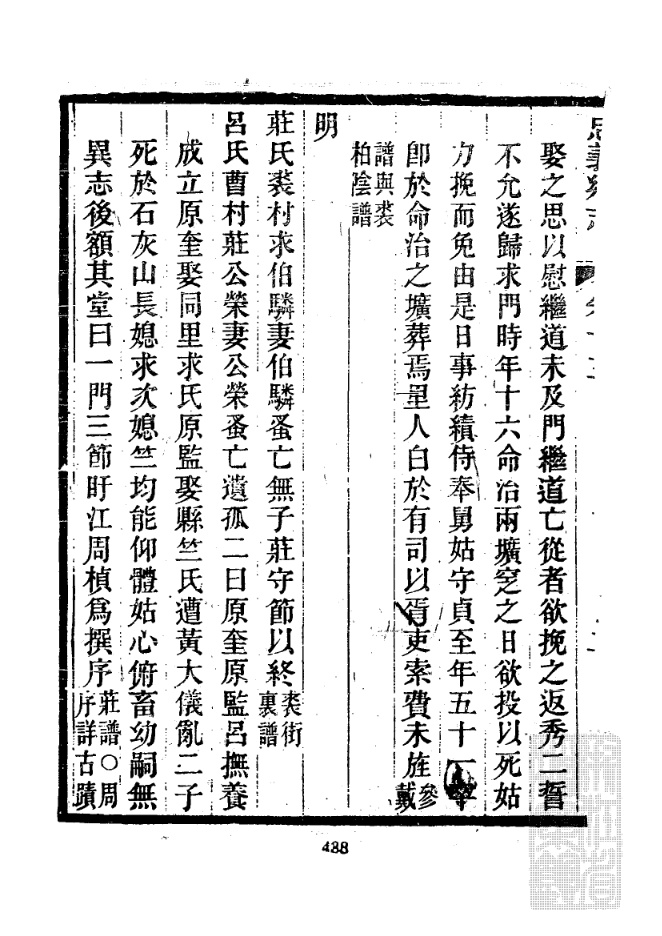 娶之思以慰繼道未及門繼道亡從者欲挽之返秀二誓
不允遂歸求門時年十六命治兩壙窆之日欲投以死姑
力挽而免由是日事紡績侍奉舅姑守貞至年五十
卽於命治之壙葬焉里人白於有司以胥吏索費未旌參戴
譜與裘
柏陰譜
明
莊氏裘村求伯驎妻伯驎蚤亡無子莊守節以終裘街裏譜
呂氏曹村莊公榮妻公榮蚤亡遺孤二曰原奎原監呂撫養
成立原奎娶同里求氏原監娶縣竺氏遭黃大儀亂二子
死於石灰山長媳求次媳竺均能仰體姑心俯畜幼嗣無
異志後額其堂曰一門三節盱江周楨爲撰序莊譜○周序詳古蹟
488